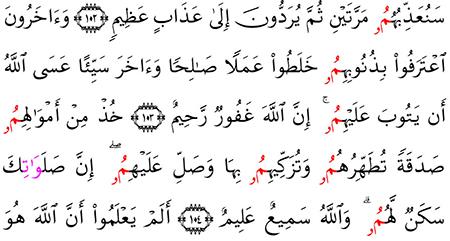 سَنُعَذِّبُهُمُۥ مَرَّتَيْنِ ثُمَّ يُرَدُّونَ إِلَىٰ عَذَابٍ عَظِيمٖ ١٠٢ وَءَاخَرُونَ
ٱعْتَرَفُوا۟ بِذُنُوبِهِمُۥ خَلَطُوا۟ عَمَلًا صَـٰلِحًا وَءَاخَرَ سَيِّئًا عَسَى ٱللَّهُ
أَن يَتُوبَ عَلَيْهِمُۥٓ ۚ إِنَّ ٱللَّهَ غَفُورٌ رَّحِيمٌ ١٠٣ خُذْ مِنْ أَمْوَٰلِهِمُۥ
صَدَقَةً تُطَهِّرُهُمُۥ وَتُزَكِّيهِمُۥ بِهَا وَصَلِّ عَلَيْهِمُۥٓ ۖ إِنَّ صَلَوَٰتِكَ
سَكَنٌ لَّهُمُۥ ۗ وَٱللَّهُ سَمِيعٌ عَلِيمٌ ١٠٤ أَلَمْ يَعْلَمُوٓا۟ أَنَّ ٱللَّهَ هُوَ